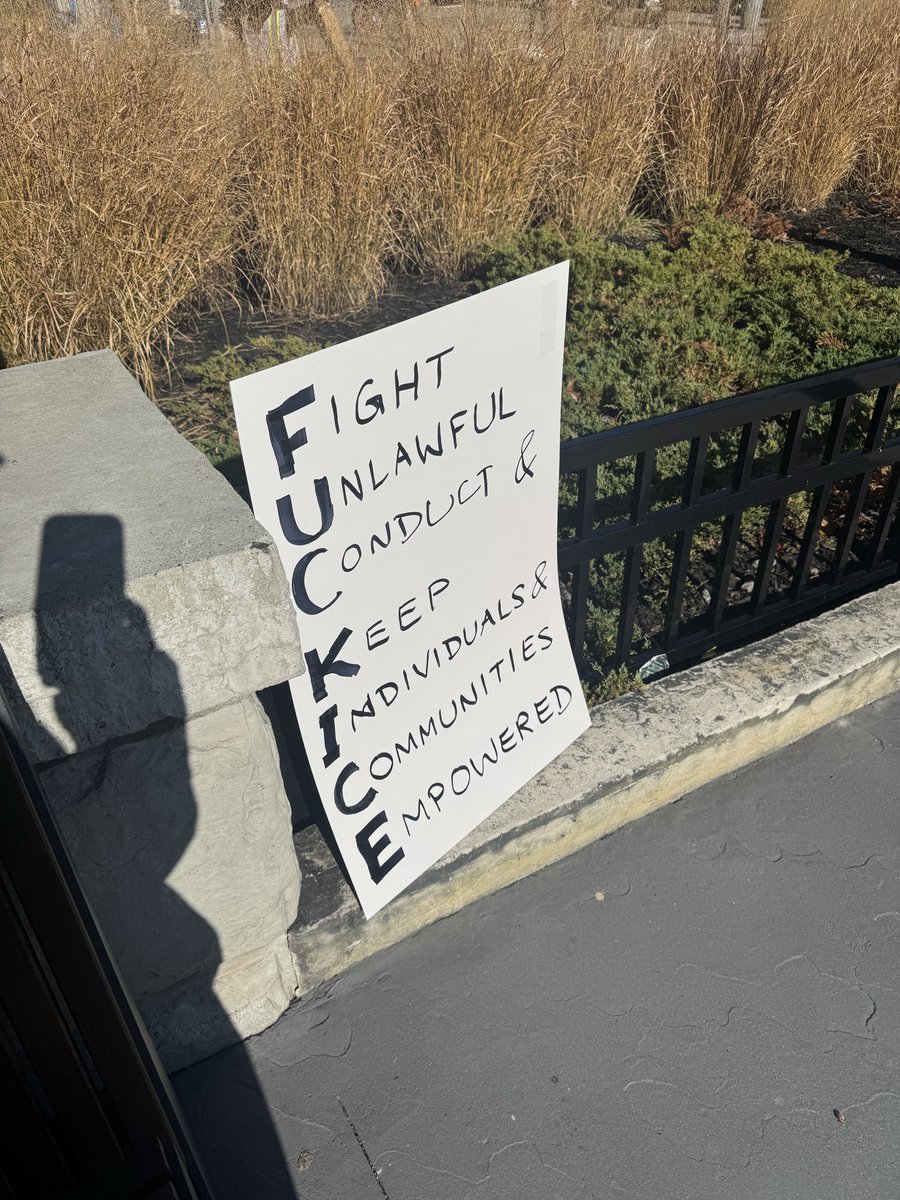 FIGHT
UNLAWFUL
CONDUCT &
KEEP
INDIVIDUALS &
COMMUNITIES
EMPOWERED